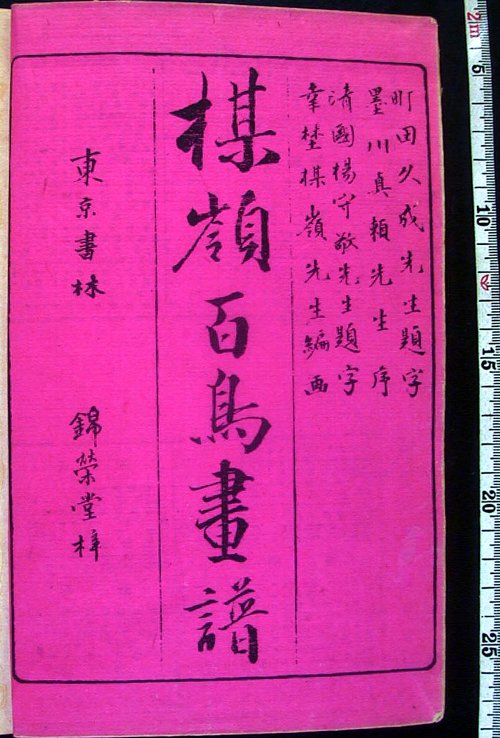 町田久成先生題字
墨川真頼先生序
清國楊守敬先生題字
幸埜楳嶺先生編画
楳嶺百鳥畫譜
東京書林 錦榮堂梓
2m
5
10
15
20
25